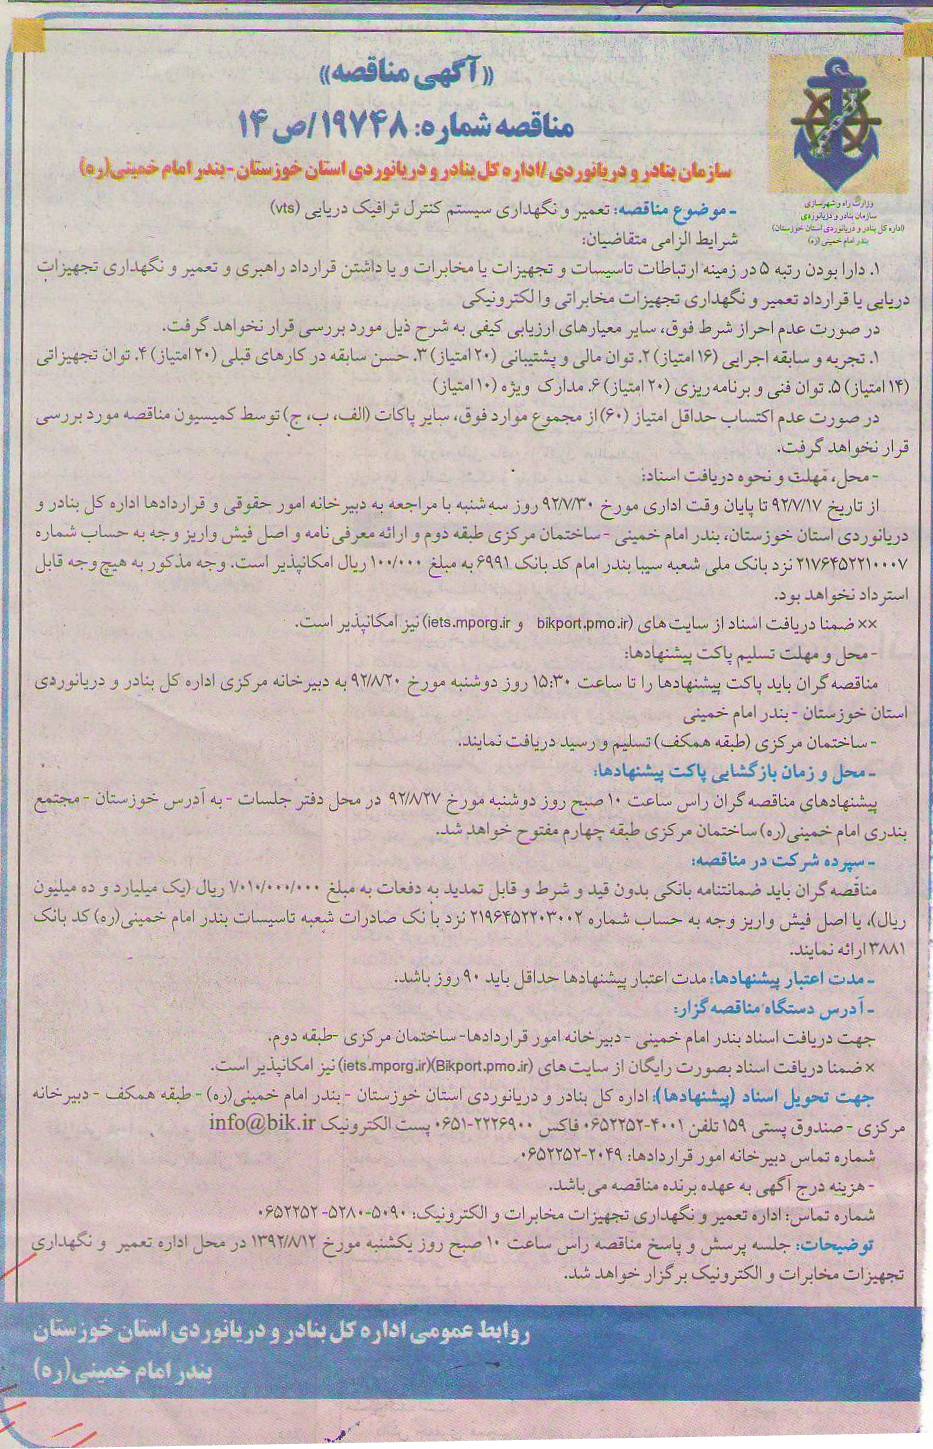 «آگهی مناقصه»
مناقصه شماره: ۱۹۷۴۸/ص ۱۴
سازمان بنادر و دریانوردی /اداره کل بنادر و دریانوردی استان خوزستان -بندر امام خمینی(ره)
وزارت راه و شهرسازی
سازمان بنادر و دریانوردی
(اداره کل بنادر و دریانوردی استان خوزستان)
بندر امام خمینی (ره)
- موضوع مناقصه: تعمیر و نگهداری سیستم کنترل ترافیک دریایی (vts)
شرایط الزامی متقاضیان:
۱. دارا بودن رتبه ۵ در زمینه ارتباطات تاسیسات و تجهیزات یا مخابرات و یا داشتن قرارداد راهبری و تعمیر و نگهداری تجهیزات
دریایی یا قرارداد تعمیر و نگهداری تجهیزات مخابراتی والکترونیکی
در صورت عدم احراز شرط فوق، سایر معیارهای ارزیابی کیفی به شرح ذیل مورد بررسی قرار نخواهد گرفت.
۱. تجربه و سابقه اجرایی (۱۶ امتیاز) ۲. توان مالی و پشتیبانی (۲۰ امتیاز) ۳. حسن سابقه در کارهای قبلی (۲۰ امتیاز) ۴. توان تجهیزاتی
(۱۴ امتیاز) ۵. توان فنی و برنامه ریزی (۲۰ امتیاز) ۶. مدارک ویژه (۱۰ امتیاز)
در صورت عدم اکتساب حداقل امتیاز (۶۰) از مجموع موارد فوق، سایر پاکات (الف، ب، ج) توسط کمیسیون مناقصه مورد بررسی
قرار نخواهد گرفت.
- محل، مهلت و نحوه دریافت اسناد:
از تاریخ ۹۲/۷/۱۷ تا پایان وقت اداری مورخ ۹۲/۷/۳۰ روز سه شنبه با مراجعه به دبیرخانه امور حقوقی و قراردادها اداره کل بنادر و
دریانوردی استان خوزستان، بندر امام خمینی - ساختمان مرکزی طبقه دوم و ارائه معرفی نامه و اصل فیش واریز وجه به حساب شماره
۲۱۷۶۴۵۲۲۱۰۰۰۷ نزد بانک ملی شعبه سیبا بندر امام کد بانک ۶۹۹۱ به مبلغ ۱۰۰/۰۰۰ ریال امکانپذیر است. وجه مذکور به هیچ وجه قابل
استرداد نخواهد بود.
×× ضمنا دریافت اسناد از سایت های (bikport.pmo.ir و iets.mporg.ir) نیز امکانپذیر است.
- محل و مهلت تسلیم پاکت پیشنهادها:
مناقصه گران باید پاکت پیشنهادها را تا ساعت ۱۵:۳۰ روز دوشنبه مورخ ۹۲/۸/۲۰ به دبیرخانه مرکزی اداره کل بنادر و دریانوردی
استان خوزستان - بندر امام خمینی
- ساختمان مرکزی (طبقه همکف) تسلیم و رسید دریافت نمایند.
- محل و زمان بازگشایی پاکت پیشنهادها:
پیشنهادهای مناقصه گران راس ساعت ۱۰ صبح روز دوشنبه مورخ ۹۲/۸/۲۷ در محل دفتر جلسات - به آدرس خوزستان - مجتمع
بندری امام خمینی(ره) ساختمان مرکزی طبقه چهارم مفتوح خواهد شد.
- سپرده شرکت در مناقصه:
مناقصه گران باید ضمانتنامه بانکی بدون قید و شرط و قابل تمدید به دفعات به مبلغ ۱/۰۱۰/۰۰۰/۰۰۰ ریال (یک میلیارد و ده میلیون
ریال)، یا اصل فیش واریز وجه به حساب شماره ۲۱۹۶۴۵۲۲۰۳۰۰۲ نزد بانک صادرات شعبه تاسیسات بندر امام خمینی(ره) کد بانک
۳۸۸۱ ارائه نمایند.
- مدت اعتبار پیشنهادها: مدت اعتبار پیشنهادها حداقل باید ۹۰ روز باشد.
- آدرس دستگاه مناقصه گزار:
جهت دریافت اسناد بندر امام خمینی - دبیرخانه امور قراردادها- ساختمان مرکزی -طبقه دوم.
× ضمنا دریافت اسناد بصورت رایگان از سایت های (Bikport.pmo.ir)(iets.mporg.ir) نیز امکانپذیر است.
جهت تحویل اسناد (پیشنهادها): اداره کل بنادر و دریانوردی استان خوزستان -بندر امام خمینی(ره) - طبقه همکف - دبیرخانه
مرکزی - صندوق پستی ۱۵۹ تلفن ۴۰۰۱-۰۶۵۲۲۵۲ فاکس ۲۲۲۶۹۰۰-۰۶۵۱ پست الکترونیک info@bik.ir
شماره تماس دبیرخانه امور قراردادها: ۲۰۴۹-۰۶۵۲۲۵۲
- هزینه درج آگهی به عهده برنده مناقصه می باشد.
شماره تماس: اداره تعمیر و نگهداری تجهیزات مخابرات و الکترونیک: ۵۰۹۰-۵۲۸۰- ۰۶۵۲۲۵۲
توضیحات: جلسه پرسش و پاسخ مناقصه راس ساعت ۱۰ صبح روز یکشنبه مورخ ۱۳۹۲/۸/۱۲ در محل اداره تعمیر و نگهداری
تجهیزات مخابرات و الکترونیک برگزار خواهد شد.
روابط عمومی اداره کل بنادر و دریانوردی استان خوزستان
بندر امام خمینی(ره)